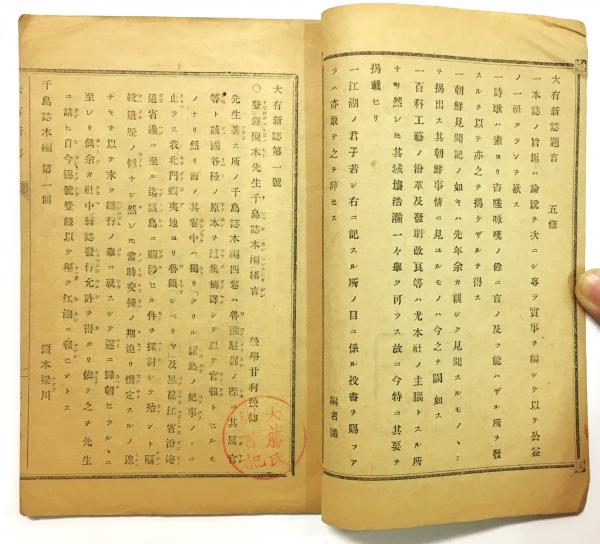 大有新誌題言　五條
一本誌ノ旨趣ハ論説ヲ次ニシ專ラ實事ヲ編シ以テ公益
ノ一班タランヿヲ欲ス
一詩歌ハ素ヨリ咨嗟咏嘆ノ餘ニ言ノ及フ能ハザル所ヲ發
スルヲ以テ亦之ヲ揭ケザルヲ得ス
一朝鮮見聞記ノ如キハ先年余カ親シク見聞スルモノ、ミ
ヲ揭出ス其朝鮮事情ニ見ユルモノハ今之ヲ闕如ス
一百科工藝ノ沿革及發明改良等ハ尤本社ノ主腦トスル所
ナリ然ㇾ𪜈其域壤浩瀚一々擧ク可ラス故ニ今特ニ其要ヲ
揭載セリ
一江湖ノ君子若シ右ニ記スル所ノ目ニ係ル投書ヲ賜フア
ラハ亦敢テ之ヲ辭セス
編者識
大有新誌第一號
〇登錄榎本先生千島誌本編緒言　後學甘利後知
先生著ス所ノ千島誌本編四卷ハ魯國駐劄ノ際其屬官
等ト該國各種ノ原本ヲ抄譯シテ以テ官報トセルモ
ノナリ然リ而メ其卷中ハ獨リ「クリル諸島ノ紀事ノミニ
止ラス我北門蝦夷地ヨリ魯領シベリヤ」及黑龍江省沿海
道省邊ニ至ル迄該島ニ關渉セル件ヲ探討シテ殆ント漏
脱遺ノ然ㇾ𪜈當時交換ノ期迫リ撰定スルノ遑
ナキヲ以テ未タ行ノ擧ニ及スシテ遂ニ歸朝セラル、ニ
至レリ偶余カ社中新誌發行允許ヲ得タリ依テ之ヲ先生
ニ請ヒ自今逐號登錄以テ編ク江湖ニ報セントス
千島誌本編　第一回　榎本梁川
大藤氏